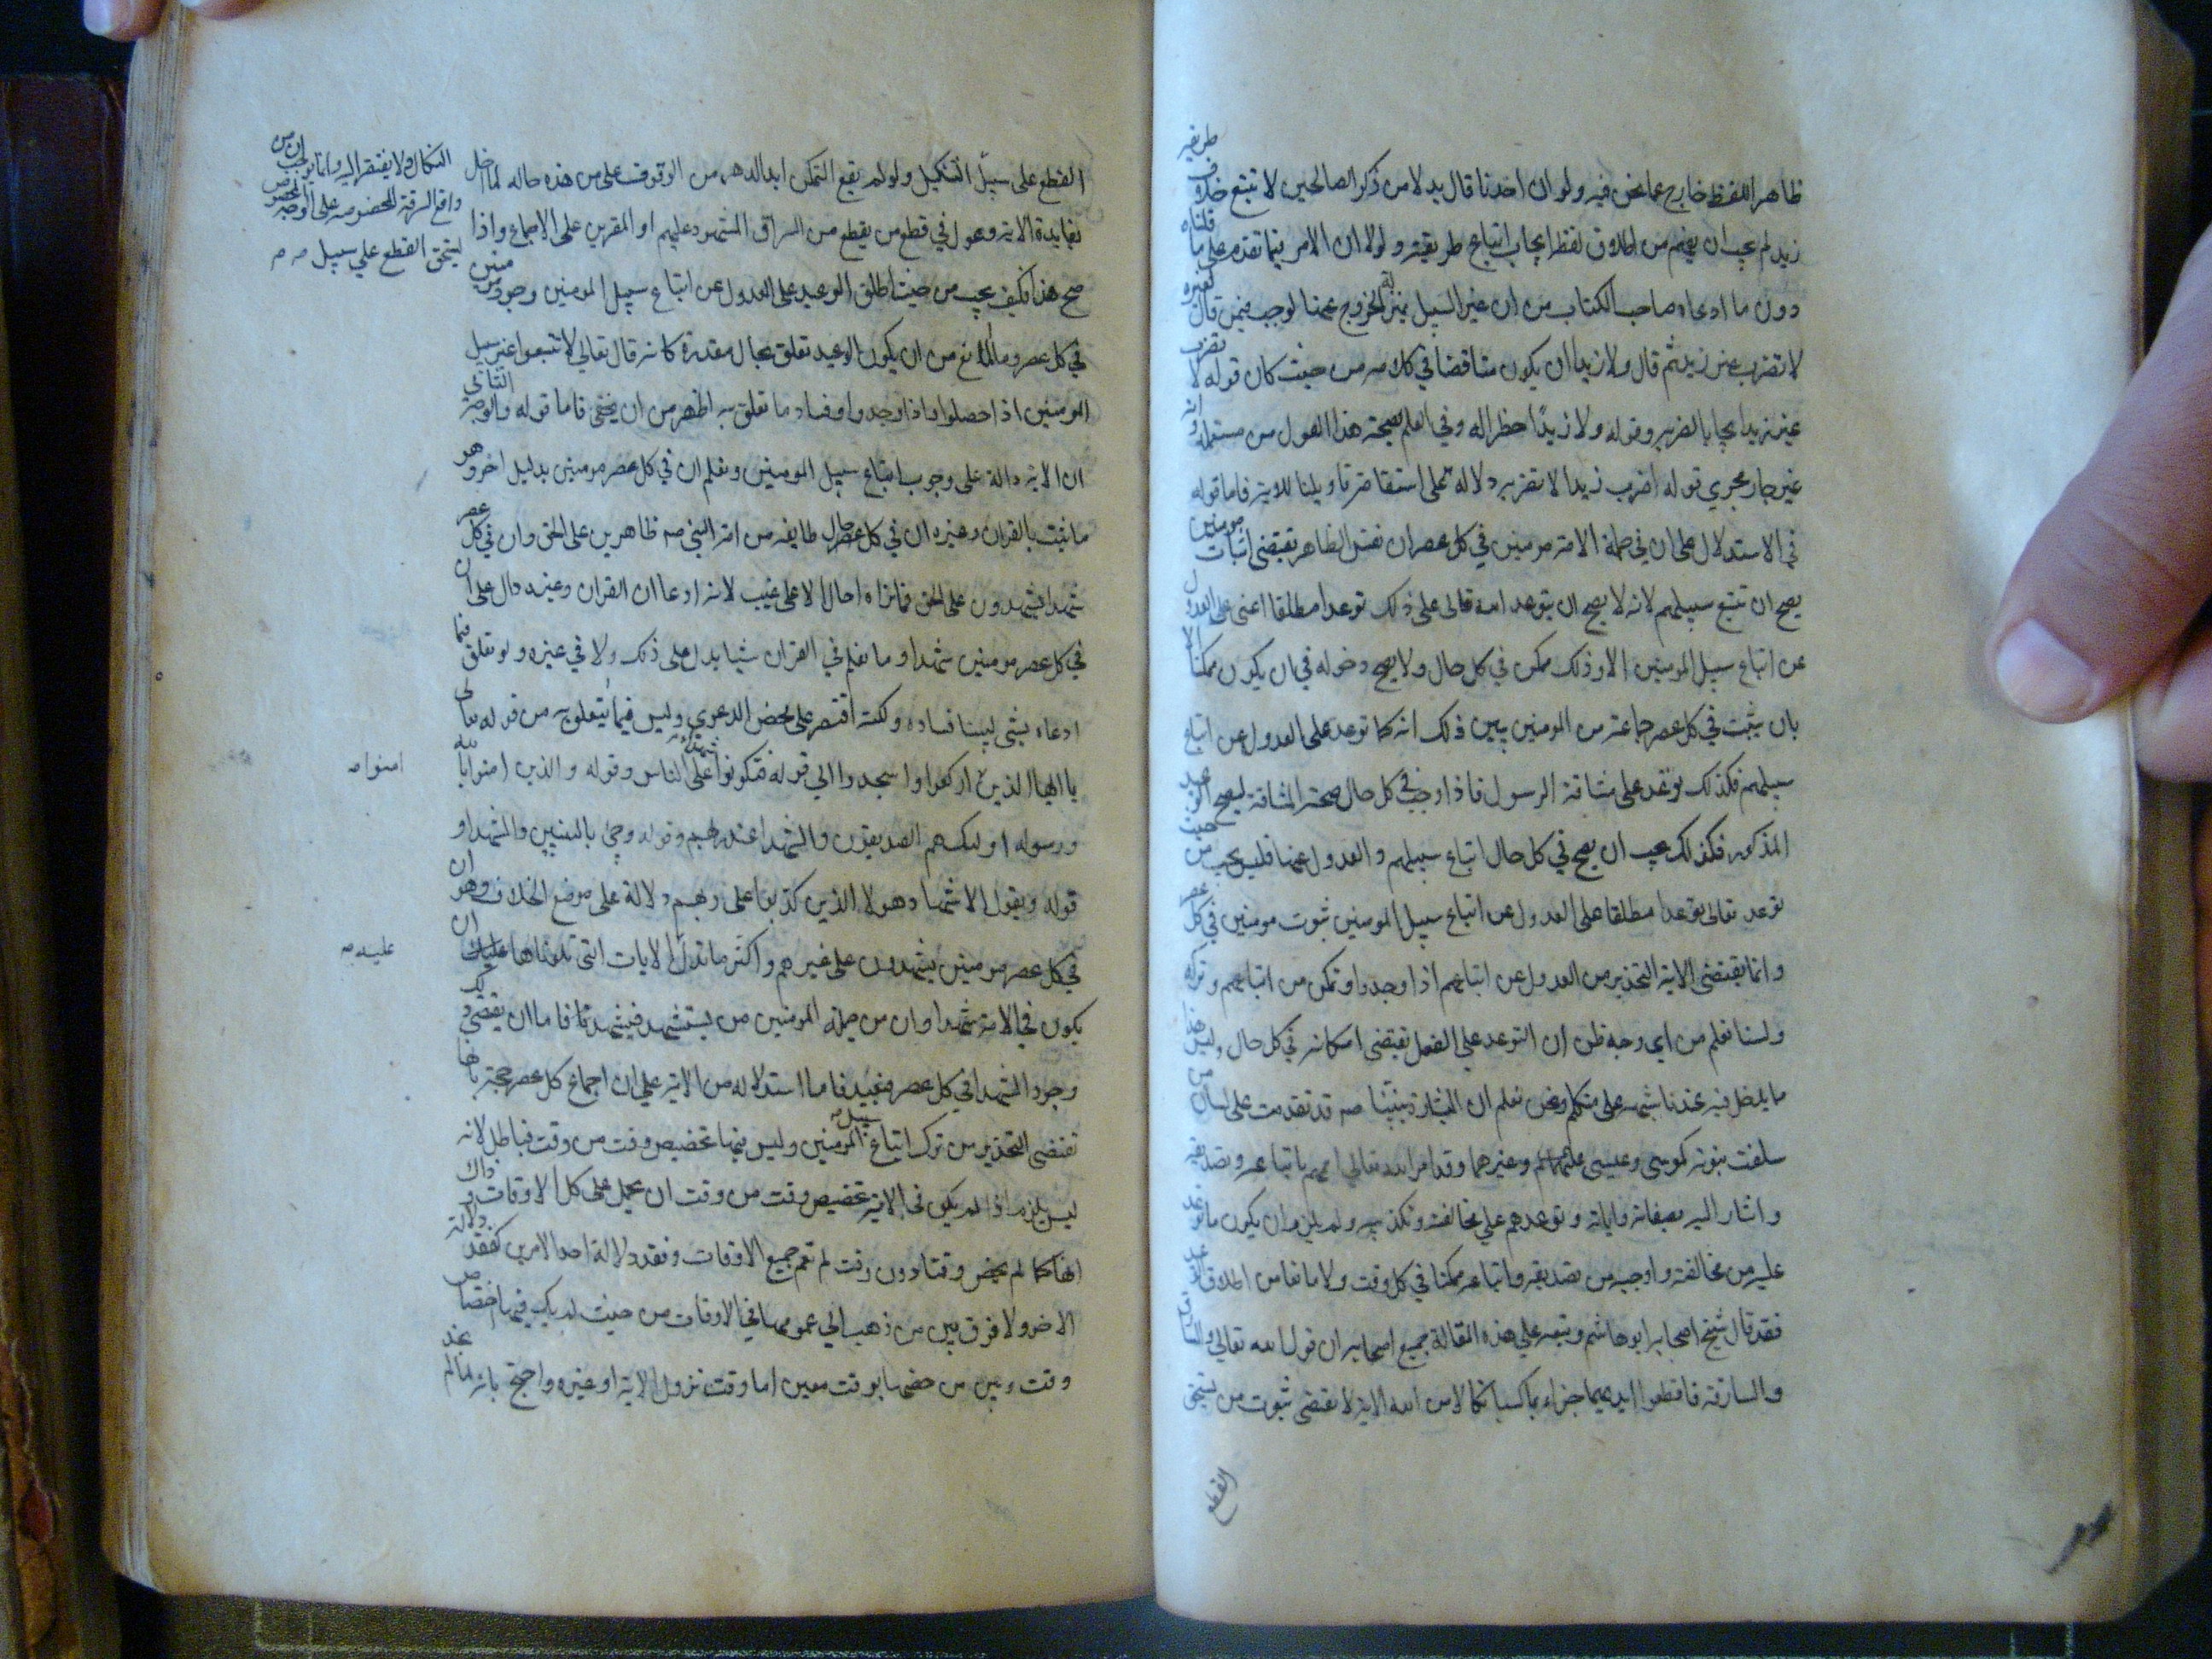 ظاهر اللفظ خارج عما نحن فيه ولو ان احدنا قال بدلا من ذكر الصالحين لا تتبع خلاف طريقه
زيد لم يجب ان يفهم من اطلاق لفظ ايجاب اتباع طريقه ولولا ان الامر فيما تقدم على ما قلناه
دون ما ادعاه صاحب الكتاب من ان غير السبيل بمنزلة الخروج عنها لوجب فيمن قال لغيره
لا تضرب غير زيد ثم قال ولا زيدا ان يكون مناقضا في كلامه من حيث كان قوله لا تضرب
غير زيد ايجابا لضربه وقوله ولا زيدا حظرا له وفي العلم بصحة هذا القول من مستعمله وانه
غير جار مجرى قوله اضرب زيدا لا تضربه دلالة على استقامة تاويلنا للاية فاما قوله
في الاستدلال على ان في جملة الامة مومنين في كل عصر ان نفس الظاهر يقتضى اثبات مومنين
يصح ان تتبع سبيلهم لانه لا يصح ان يتوعد الله تعالى على ذلك توعدا مطلقا اعنى على العدول
عن اتباع سبيل المومنين الا وذلك ممكن في كل حال ولا يصح دخوله في ان يكون ممكنا الا
بان يثبت في كل عصر جماعة من المومنين يبين ذلك انه كما توعد على العدول عن اتباع
سبيلهم فكذلك توعد على مشاقة الرسول فاذا وجب في كل حال صحة المشاقة ليصح الوعيد
المذكور فكذلك يجب ان يصح في كل حال اتباع سبيلهم والعدول عنها فليس يجب من حيث
توعد تعالى توعدا مطلقا على العدول عن اتباع سبيل المومنين ثبوت مومنين في كل عصر
وانما يقتضى الاية التحذير من العدول عن اتباعهم اذا وجدوا وتمكن من اتباعهم وتركه
ولسنا نعلم من اى وجه ظن ان التوعد على الفعل يقتضى امكانه في كل حال وليس هذا
مما يدخل فيه عندنا شبهة على متكلم ونحن نعلم ان البشارة بنبينا صم قد تقدمت على لسان من
سلفت نبوته كموسى وعيسى عليهما السلم وغيرهما وقد امر الله تعالى اممهم باتباعه وتصديقه
واشار اليه بصفاته واياته وتوعدهم على مخالفته وتكذيبه ولم يلزم ان يكون ما توعد
عليه من مخالفته واوجبه من تصديقه واتباعه ممكنا في كل وقت ولا مانعا من اطلاق الوعيد
فقد قال شيخ اصحابه ابو هاشم وتبعه على هذه المقالة جميع اصحابه ان قول الله تعالى والسارق
والسارقة فاقطعوا ايديهما جزاء بما كسبا نكالا من الله الاية لا يقتضى ثبوت من يستحق
القطع
القطع على سبيل التنكيل ولو لم يقع التمكن ابد الدهر من الوقوف على من هذه حاله لما اخل
بفايدة الاية وعول في قطع من يقطع من السراق المشهود عليهم او المقرين على الاجماع واذا
صح هذا فكيف يجب من حيث اطلق الوعيد على العدول عن اتباع سبيل المومنين وجود مومنين
في كل عصر وما المانع من ان يكون الوعيد تعلق بحال مقدرة كانه قال تعالى لا تتبعوا غير سبيل
المومنين اذا حصلوا واذا وجدوا وفساد ما تعلق به اظهر من ان يخفى فاما قوله والوجه الثانى
ان الاية دالة على وجوب اتباع سبيل المومنين ونعلم ان في كل عصر مومنين بدليل اخر وهو
ما ثبت بالقران وغيره ان في كل حال طايفة من امة النبي صم ظاهرين على الحق وان في كل عصر
شهدا يشهدون على الحق فما نراه احال الا على غيب لانه ادعا ان القران وغيره دال على ان
في كل عصر مومنين شهدا وما نعلم في القران شيا يدل على ذلك ولا في غيره ولو تعلق فيما
ادعاه بشى لبينا فساده ولكنه اقتصر على محض الدعوى وليس فيما يتعلق به من قوله تعالى
يا ايها الذين اركعوا واسجدوا الى قوله فتكونوا شهداء على الناس وقوله والذين امنوا بالله
امنوا صم
ورسوله اولئك هم الصديقون والشهدا عند ربهم وقوله وجئ بالنبيين والشهدا و
قوله ويقول الاشهاد هولا الذين كذبوا على ربهم دلالة على موضع الخلاف وهو ان
في كل عصر مومنين يشهدون على غيرهم واكثر ما تدل الايات التى تلوناها عليك ان
يكون في الامة شهدا وان من جملة المومنين من يستشهد فيشهد فاما ان يقتضى
وجود الشهدا في كل عصر فبعيد فاما استدلاله من الاية على ان اجماع كل عصر حجة بانها
تقتضى التحذير من ترك اتباع سبيل المومنين وليس فيها تخصيص وقت من وقت فباطل لانه
ليس يلزم اذا لم يكن في الاية تخصيص وقت من وقت ان يحمل على كل الاوقات وذاك
انها كما لم يخص وقتا دون وقت لم تعم جميع الاوقات وفقد دلالة احد الامرين كفقد دلالة
الاخر ولا فرق بين من ذهب الى عمومها في الاوقات من حيث لم يكن فيها اختصاص
وقت وبين من خصها بوقت معين اما وقت نزول الاية او غيره واحتج بانه لما لم نجد